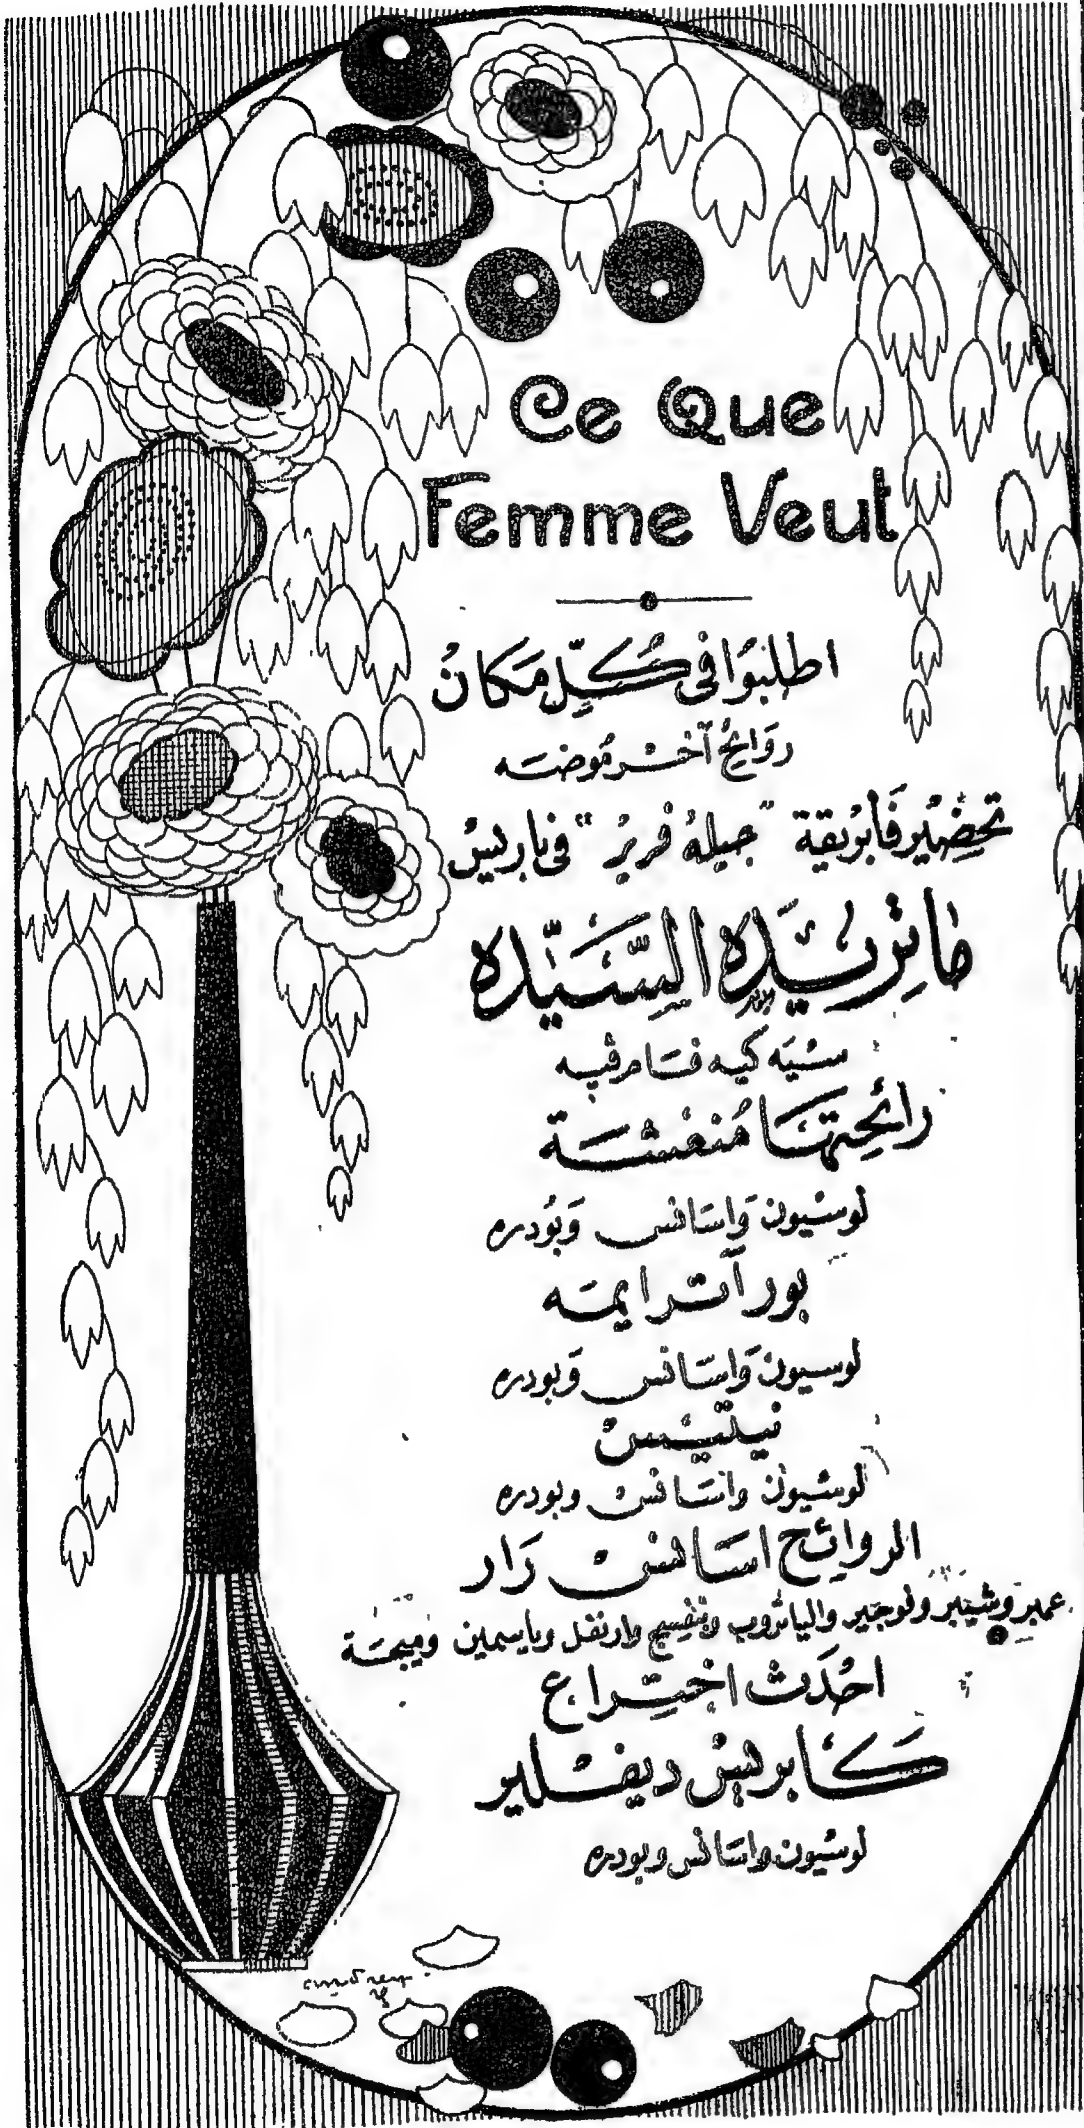 Ce Que
Femme Veut
اطلبوا فى كل مكان
روائح آخر موضه
تحضير فابريقة "جيله فرير" فى باريس
ما تريده السيده
سيه كيه فام ڤيه
رائحتها منعشة
لوسيون واسانس وبودره
بور آتر ايمه
لوسيون واسانس وبودره
لوسيون واسانس وبودره
الروائح اسانس رار
عمبر وشيبر ونوجير والياتروب وبنفسج وارنفل وياسمين
احدث اختراع
كابريس ديفلير
لوسيون واسانس وبودره